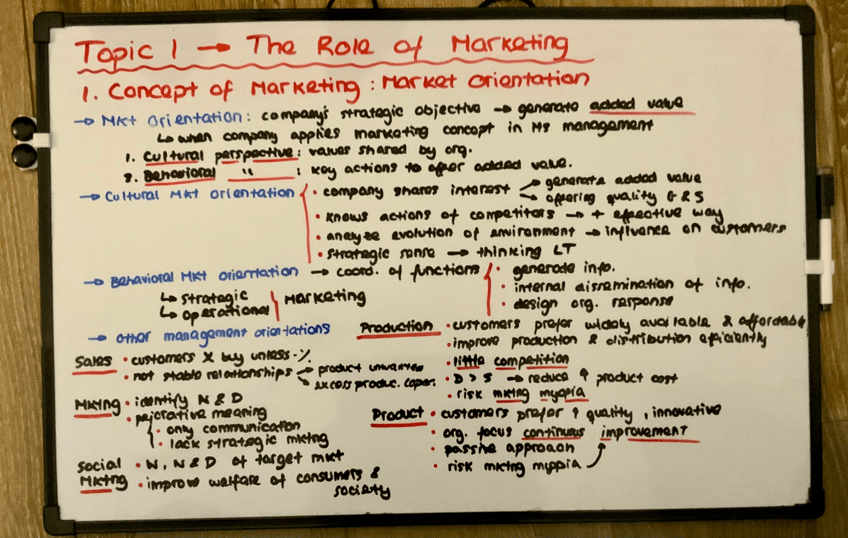 Topic 1 → The Role of Marketing
1. Concept of Marketing : Market Orientation
→ Mkt Orientation : company's strategic objective → generate added value
↳ when company applies marketing concept in its management
1. Cultural perspective : values shared by org.
2. Behavioral " : key actions to offer added value.
→ Cultural Mkt orientation
• company shares interest → generate added value
↘ offering quality G & S
• knows actions of competitors → + effective way
• analyze evolution of environment → influence on customers
• strategic sense → thinking LT
→ Behavioral Mkt orientation → coord. of functions
• generate info.
• internal dissemination of info.
• design org. response
↳ strategic
↳ operational
Marketing
→ other management orientations
Production • customers prefer widely available & affordable
• improve production & distribution efficiently
• little competition
• D > S → reduce ↑ product cost
• risk mkting myopia
Sales • customers x buy unless -%
• not stable relationships → product unwanted
↘ excess produc. capac.
Mkting • identify N & D
• pejorative meaning
• only communication
• lack strategic mkting
Product • customers prefer ↑ quality, innovative
• org. focus continuous improvement
• passive approach
• risk mkting myopia
Social Mkting • W, N & D of target mkt
• improve welfare of consumers &
society